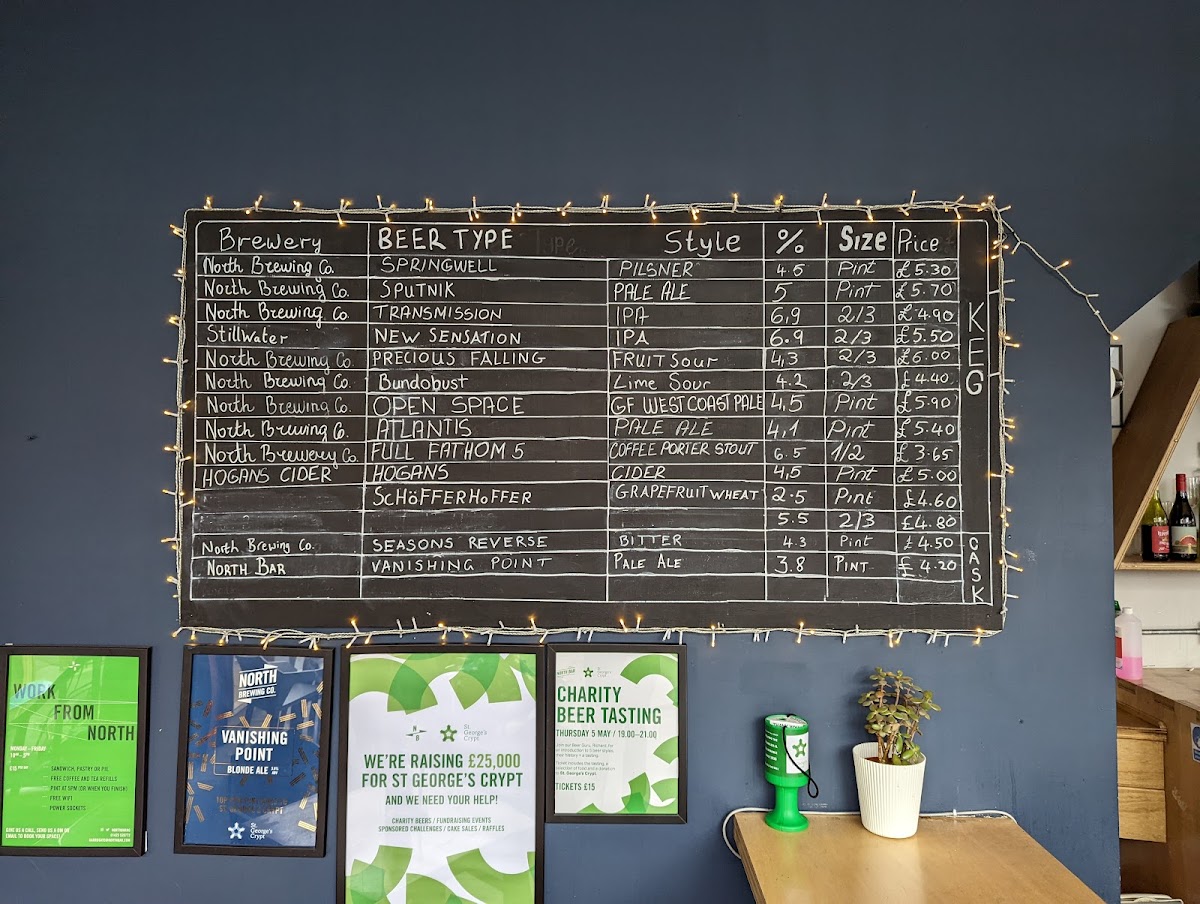 Brewery BEER TYPE Style % Size Price
North Brewing Co. SPRINGWELL PILSNER 4.5 Pint £5.30
North Brewing Co. SPUTNIK PALE ALE 5 Pint £5.70
North Brewing Co. TRANSMISSION IPA 6,9 2/3 £4.90
Stillwater NEW SENSATION IPA 6.9 2/3 £5.50
North Brewing Co. PRECIOUS FALLING FRUIT Sour 4,3 2/3 £6.00
North Brewing Co. Bundobust Lime Sour 4.2 2/3 £4.40
North Brewing Co. OPEN SPACE GF WEST COAST PALE 4,5 Pint £5.90
North Brewing Co. ATLANTIS PALE ALE 4,1 Pint £5.40
North Brewery Co. FULL FATHOM 5 COFFEE PORTER STOUT 6.5 1/2 £3.65
HOGANS CIDER HOGANS CIDER 4,5 Pint £5.00
SCHÖFFERHOFFER GRAPEFRUIT WHEAT 2.5 Pint £4.60
5.5 2/3 £4.80
North Brewing Co. SEASONS REVERSE BITTER 4.3 Pint £4.50
NORTH BAR VANISHING POINT PALE ALE 3.8 PINT £4.20
KEG
CASK
WORK
FROM
NORTH
MONDAY - FRIDAY
SANDWICH, PASTRY OR PIE
FREE COFFEE AND TEA REFILLS
PINT AT 5PM (OR WHEN YOU FINISH)
FREE WIFI
POWER SOCKETS
NORTH
BREWING CO.
VANISHING
POINT
BLONDE ALE
St
George's
Crypt
N
B
St
George's
Crypt
WE'RE RAISING £25,000
FOR ST GEORGE'S CRYPT
AND WE NEED YOUR HELP!
CHARITY BEERS / FUNDRAISING EVENTS
SPONSORED CHALLENGES / CAKE SALES / RAFFLES
CHARITY
BEER TASTING
THURSDAY 5 MAY / 19.00–21.00
TICKETS £15